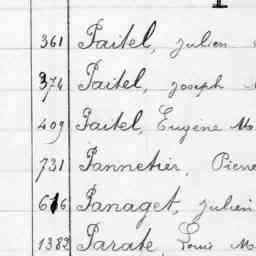 361 Paitel, Julien
374 Paitel, Joseph
409 Paitel, Eugène M
731 Pannetier, Pierre
616 Panaget, Julien
1382 Parate, Louis M